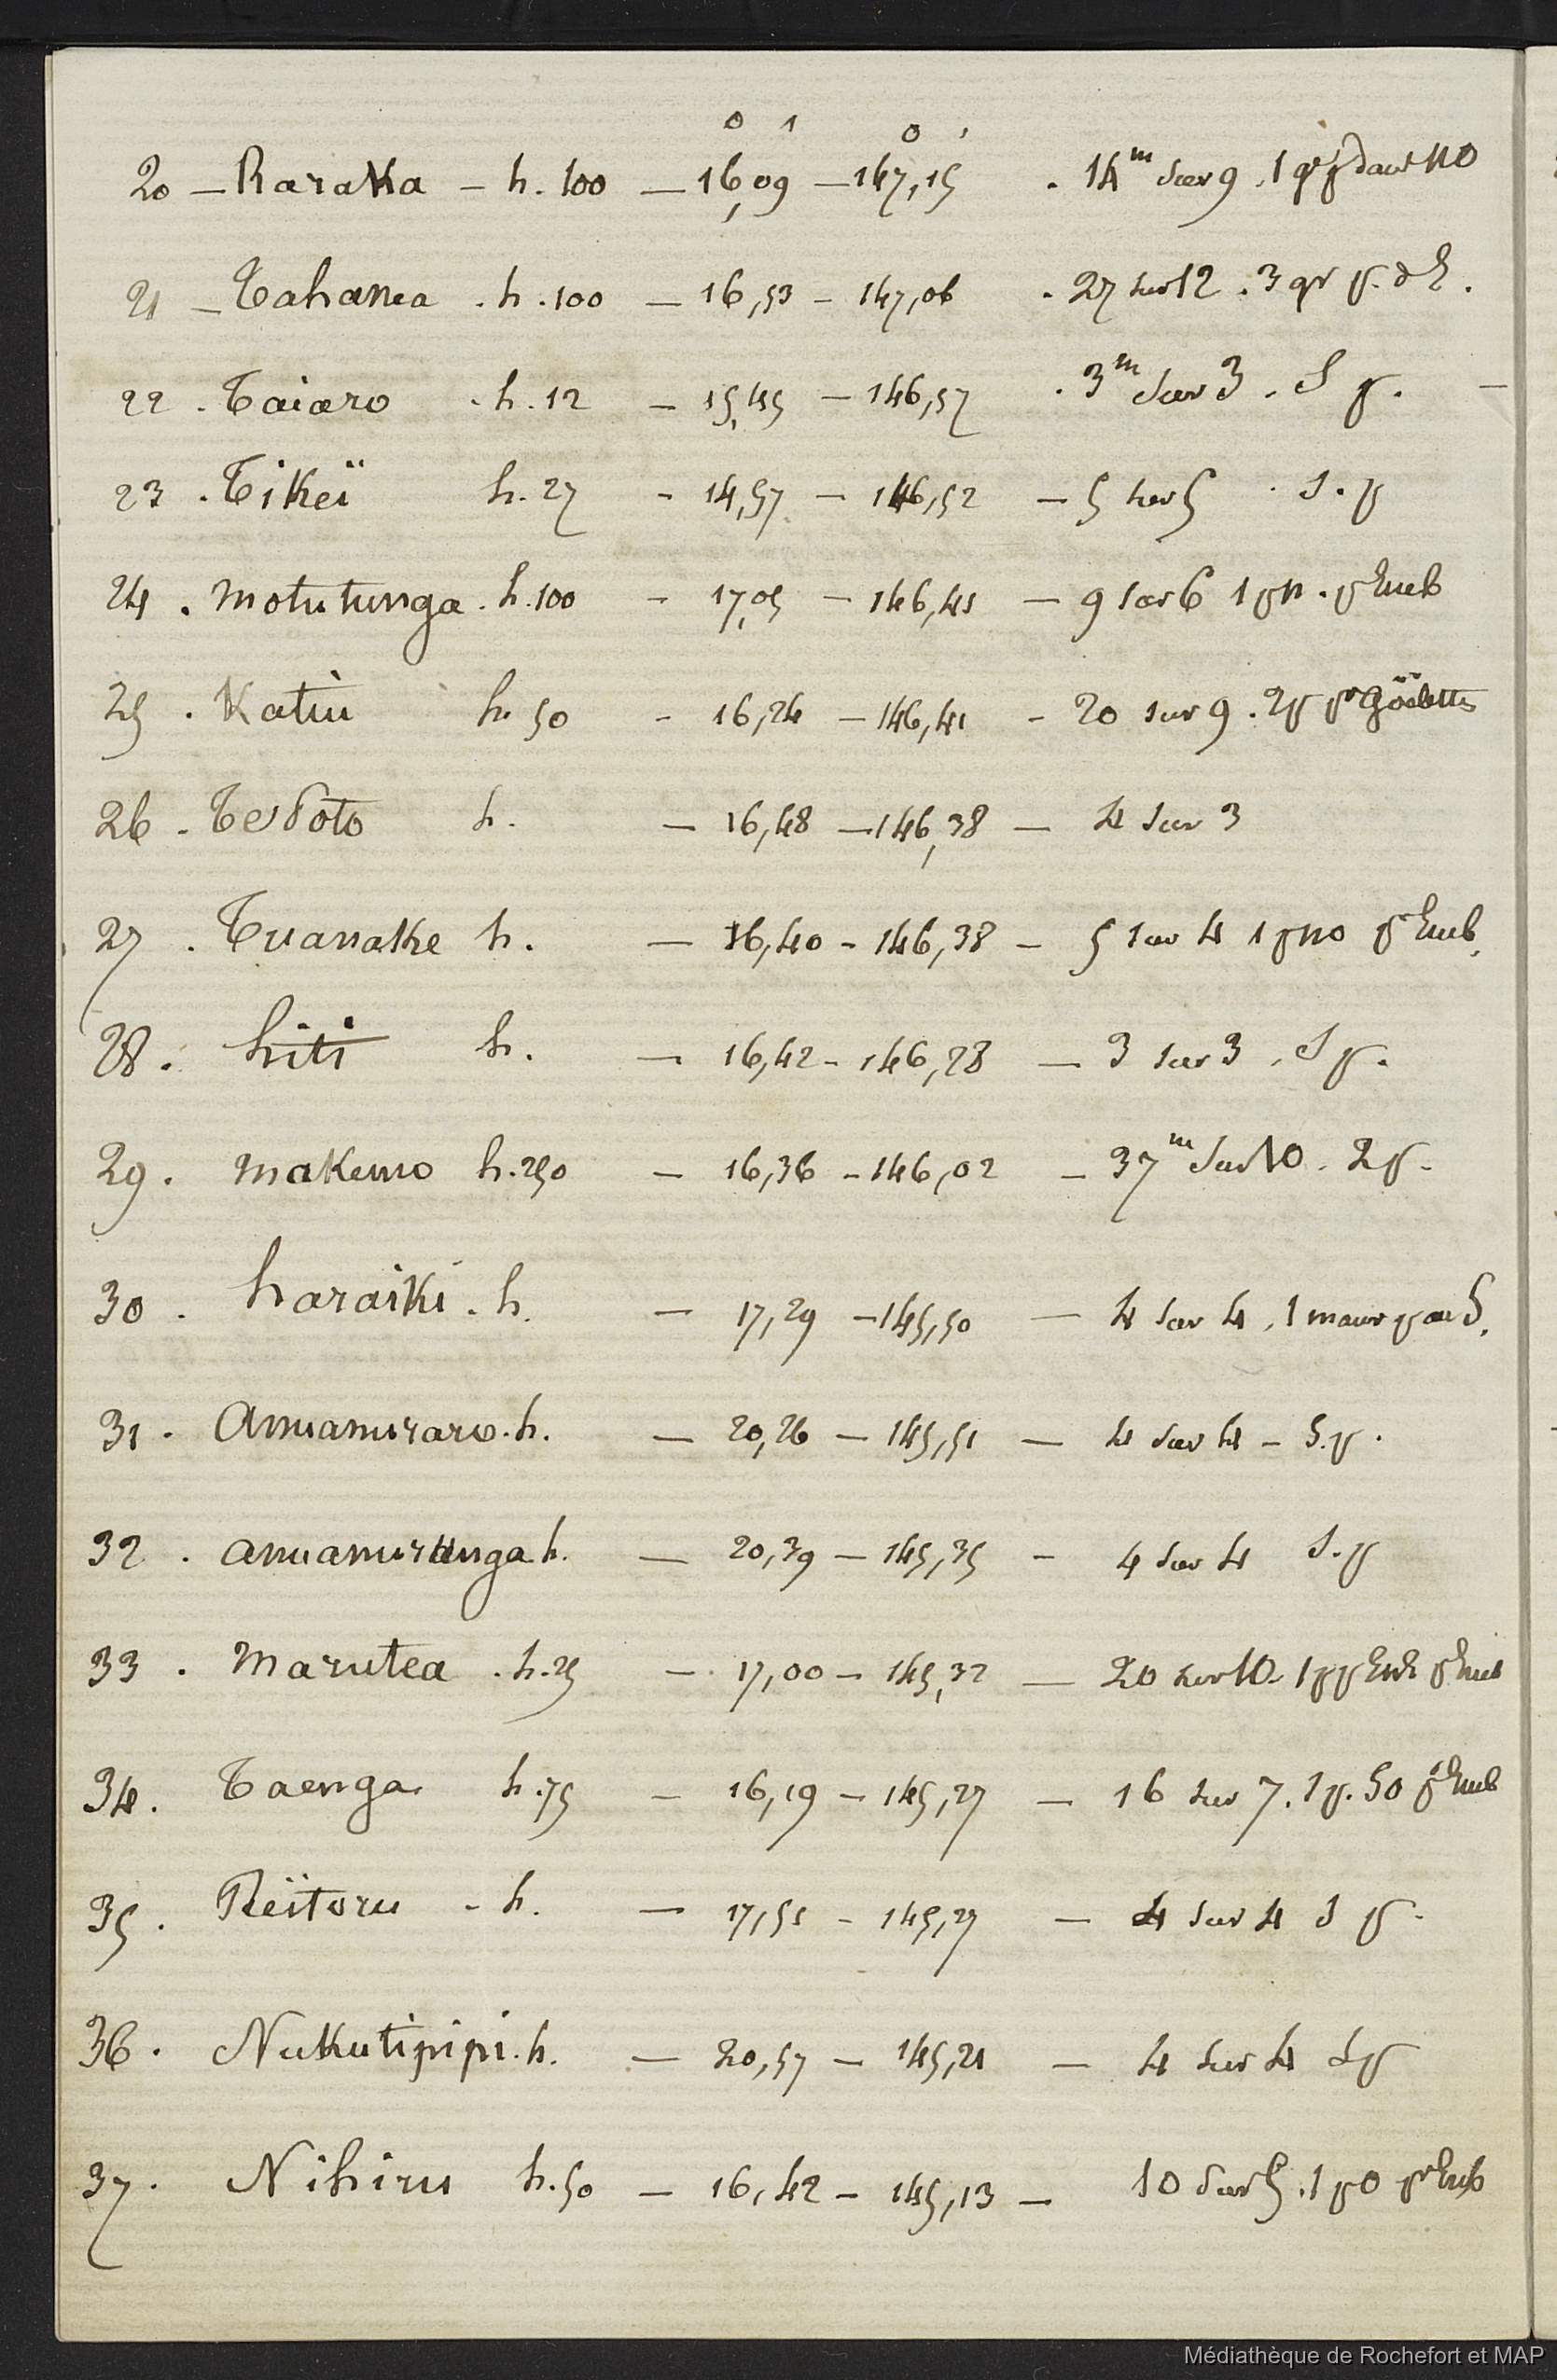 0 1 0 '
20 - Raraka - h. 100 - 16,09 - 147,15 . 14m sur 9 . 1 gr p dans NO
21 - Tahanea . h . 100 - 16,53 - 147,06 . 27 sur 12 . 3 gr p.
22 . Taiaro . h . 12 - 15,45 - 146,57 . 3m sur 3 . S p .
23 . Tikeï h. 27 - 14,57 - 146,52 - 5 sur 5 . S . p
24 . Motutunga . h . 100 - 17,05 - 146,41 - 9 sur 6 1 p N . pr Emb
25 . Katiu h. 50 - 16,24 - 146,41 - 20 sur 9 . 2 p pr Göelettes
26 . Tepoto h. - 16,48 - 146,38 - 4 sur 3
27 . Tuanake h. - 16,40 - 146,38 - 5 sur 4 1 p NO pr Emb.
28 . hiti h. - 16,42 - 146,28 - 3 sur 3 . S p .
29 . Makemo h. 250 - 16,36 - 146,02 - 37m sur 10 . 2 p .
30 . haraiki . h. - 17,29 - 145,50 - 4 sur 4 . 1 mauv p au S.
31 . Anuanuraro . h. - 20,26 - 145,51 - 4 sur 4 - S . p .
32 . anuanurunga . h. - 20,39 - 145,35 - 4 sur 4 S . p
33 . Marutea . h . 25 - 17,00 - 145,32 - 20 sur 10 . 1 p p pr Emb
34 . Taenga h . 75 - 16,19 - 145,27 - 16 sur 7 . 1 p . SO pr Emb
35 . Reïtoru - h. - 17,51 - 145,27 - 4 sur 4 S p .
36 . Nukutipipi . h. - 20,57 - 145,21 - 4 sur 4 S p
37 . Nihiru h. 50 - 16,42 - 145,13 - 10 sur 5 . 1 p O pr Emb
Médiathèque de Rochefort et MAP